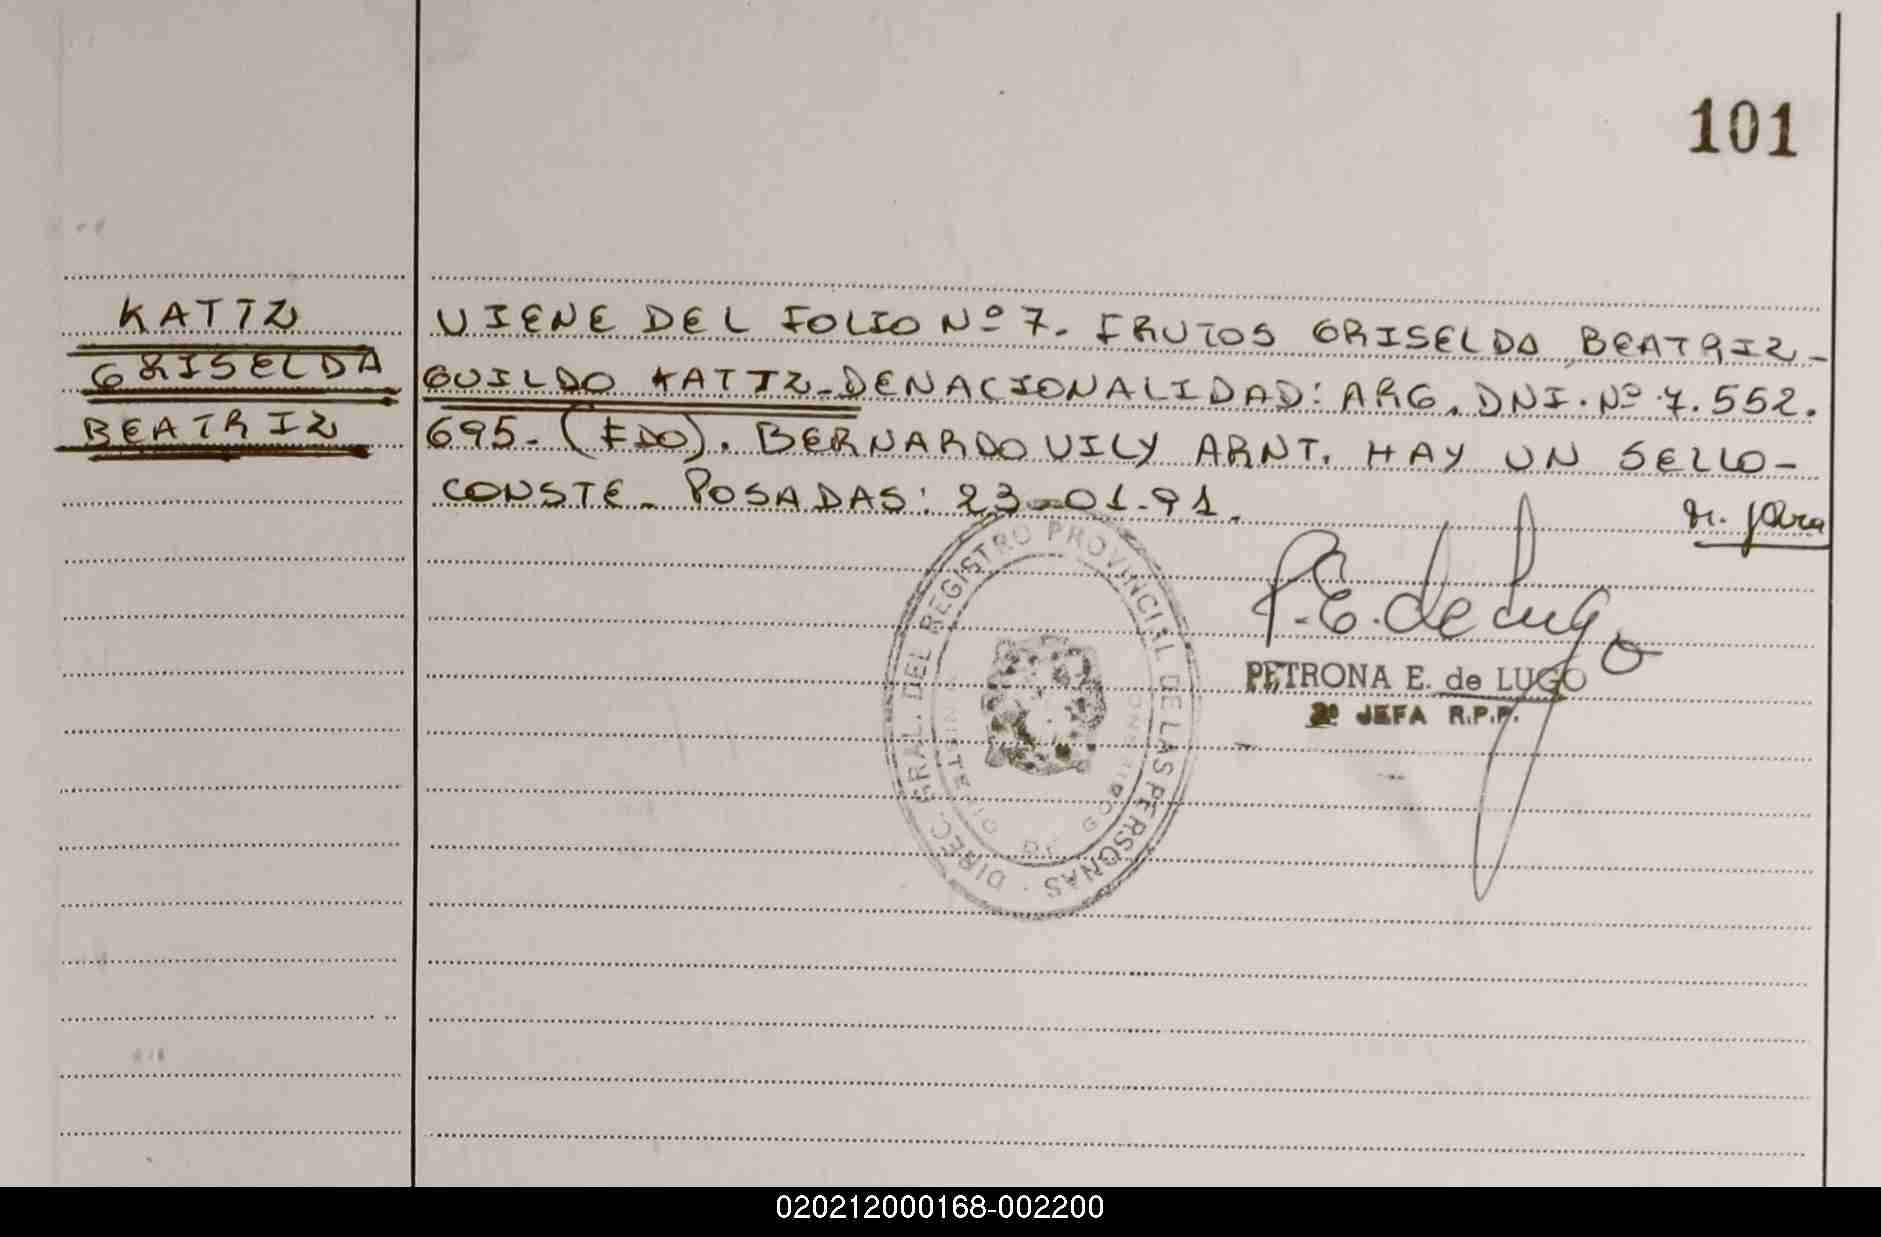 101
KATTZ
GRISELDA
BEATRIZ
VIENE DEL FOLIO Nº 7. FRUTOS GRISELDA BEATRIZ-
GUILDO KATTZ-DENACIONALIDAD: ARG. DNI. Nº 7.552.
695- (FDO). BERNARDO VILY ARNT. HAY UN SELLO-
CONSTE- POSADAS: 23-01-91.
P.E. de Lugo
PETRONA E. de LUGO
2º JEFA R.P.P.
DIREC. GRAL. DEL REGISTRO PROVINCIAL DE LAS PERSONAS
MINISTERIO DE GOBIERNO
020212000168-002200